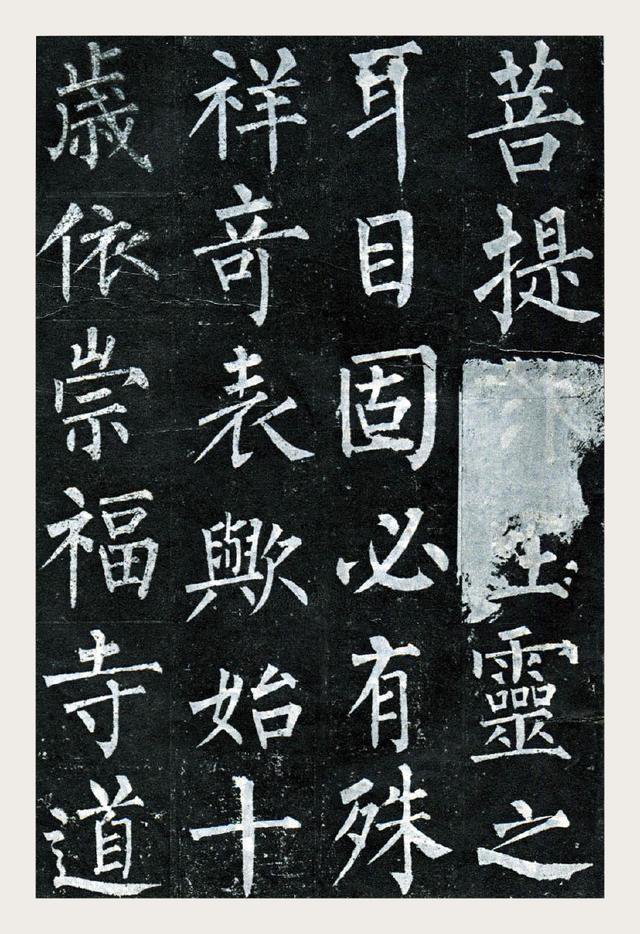 菩提生靈之
耳目固必有殊
祥竒表歟始十
歲依崇福寺道